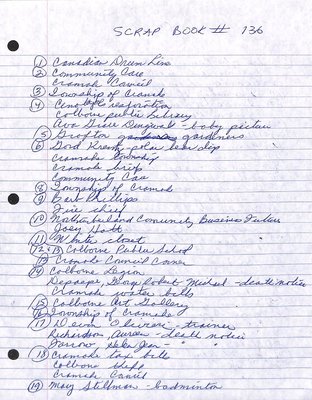 SCRAP BOOK # 136
1 Canadian Drum Line
2 Community Care
Cramahe Council
3 Township of Cramahe
4 Cenotaph restoration
Colborne public Library
Ava Grace - baby picture
5 Grafton gardeners
6 Gord - polar bear dip
Cramahe Township
Cramahe briefs
Community Care
8 Township of Cramahe
9 Bart Phillips
Fire chief
10 Northumberland Community Business Futures
Joey Hott
11 Winter closet
12-13 Colborne Public School
13 Cramahe Council Corner
14 Colborne Legion
George Robert Michael - death notice
Cramahe water bills
15 Colborne Art Gallery
16 Township of Cramahe
17 trainer
Richardson, - death notice
Farrow, Helen Jean - " "
18 Cramahe tax bills
Colborne
Cramahe
19 May Stillman - badminton